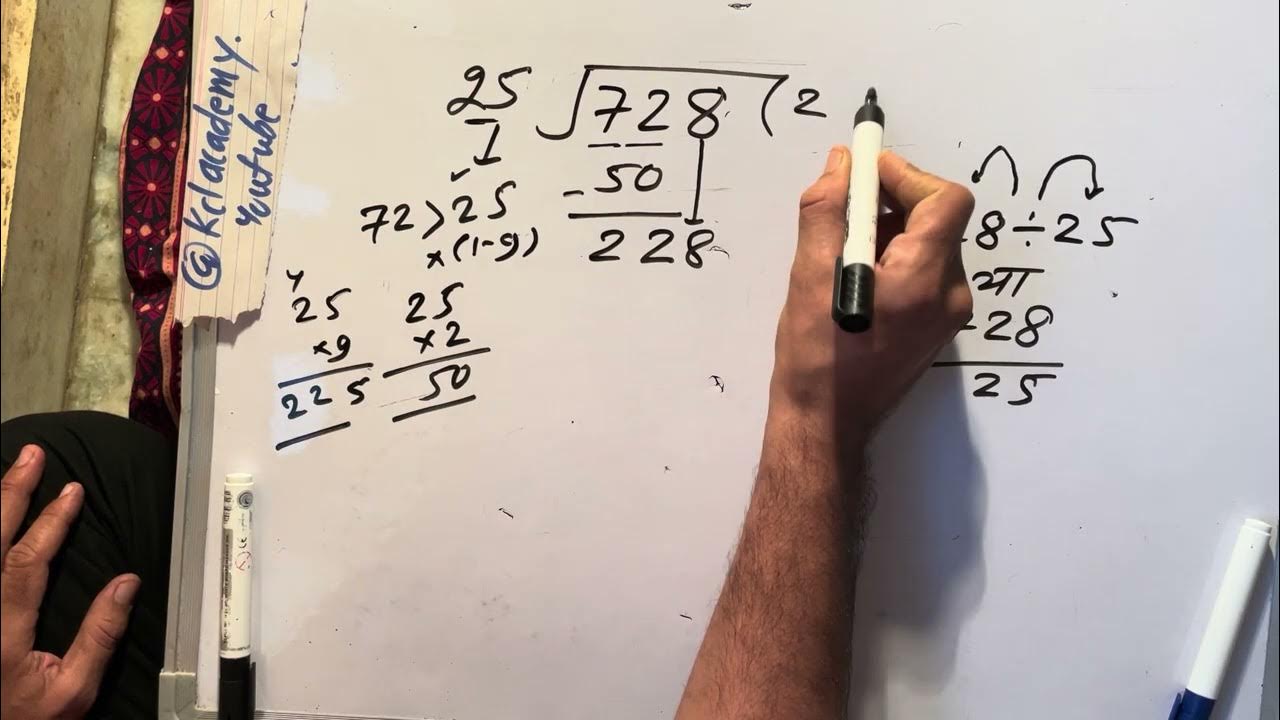 @Krlacademy.
Youtube
25 √728 (2
1
- 50
228
72>25
×(1-9)
4
25
×9
225
25
×2
50
8÷25
या
28
25